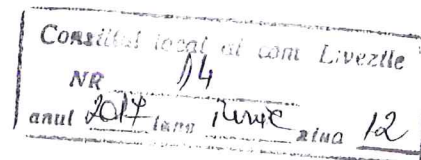 Consiliul local al com Livezile
NR 14
anul 2017 luna iunie ziua 12